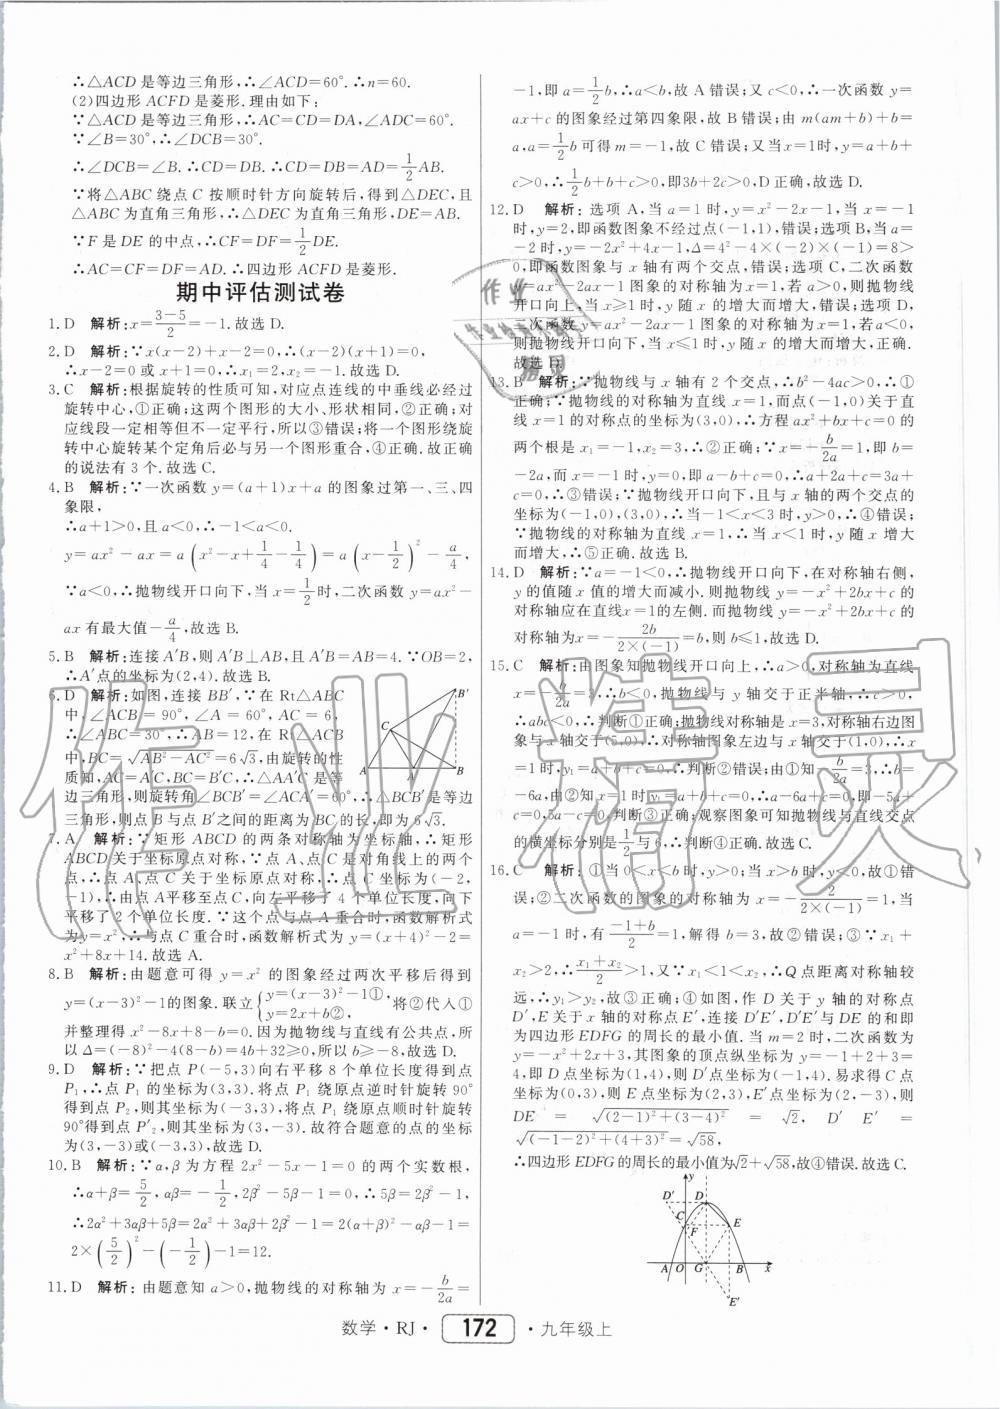 ∴△ACD 是等边三角形,∴∠ACD=60°.∴n=60.
(2)四边形 ACFD 是菱形.理由如下:
∵△ACD 是等边三角形,∴AC=CD=DA,∠ADC=60°.
∵∠B=30°,∴∠DCB=30°.
∴∠DCB=∠B.∴CD=DB.∴CD=DB=AD=1/2AB.
∵将△ABC 绕点 C 按顺时针方向旋转后,得到△DEC,且
△ABC 为直角三角形,∴△DEC 为直角三角形,DE=AB.
∵F 是 DE 的中点,∴CF=DF=1/2DE.
∴AC=CF=DF=AD.∴四边形 ACFD 是菱形.
期中评估测试卷
1.D 解析:x=(3-5)/2=-1.故选 D.
2.D 解析:∵x(x-2)+x-2=0,∴(x-2)(x+1)=0,
∴x-2=0 或 x+1=0,∴x₁=2,x₂=-1.故选 D.
3.C 解析:根据旋转的性质可知,对应点连线的中垂线必经过
旋转中心,①正确;这两个图形的大小、形状相同,②正确;对
应线段一定相等但不一定平行,所以③错误;将一个图形绕旋
转中心旋转某个定角后必与另一个图形重合,④正确.故正确
的说法有 3 个.故选 C.
4.B 解析:∵一次函数 y=(a+1)x+a 的图象过第一、三、四
象限,
∴a+1>0,且 a<0,∴-1<a<0.
y=ax²-ax=a(x²-x+1/4-1/4)=a(x-1/2)²-a/4,
∵a<0,∴抛物线开口向下,当 x=1/2时,二次函数 y=ax²-
ax 有最大值-a/4,故选 B.
5.B 解析:连接 A′B,则 A′B⊥AB,且 A′B=AB=4.∵OB=2,
∴A′点的坐标为(2,4).故选 B.
6.D 解析:如图,连接 BB′,∵在 Rt△ABC
中,∠ACB=90°,∠A=60°,AC=6,
∴∠ABC=30°,∴AB=12,在 Rt△ACB
中,BC=√(AB²-AC²)=6√3,由旋转的性
质知,AC=A′C,BC=B′C,∴△AA′C 是等
边三角形,则旋转角∠BCB′=∠ACA′=60°,∴△BCB′是等边
三角形,则点 B 与点 B′之间的距离为 BC 的长,即为 6√3.
7.A 解析:∵矩形 ABCD 的两条对称轴为坐标轴,∴矩形
ABCD 关于坐标原点对称,∵点 A、点 C 是对角线上的两个
点,∴点 A、点 C 关于坐标原点对称,∴点 C 坐标为(-2,
-1),∴由点 A平移至点 C,向左平移了 4 个单位长度,向下
平移了 2 个单位长度.∵这个点与点 A 重合时,函数解析式
为 y=x²,∴与点 C 重合时,函数解析式为 y=(x+4)²-2=
x²+8x+14.故选 A.
8.B 解析:由题意可得 y=x² 的图象经过两次平移后得到
y=(x-3)²-1的图象.联立{y=(x-3)²-1①, y=2x+b②, 将②代入①
并整理得 x²-8x+8-b=0.因为抛物线与直线有公共点,所
以 Δ=(-8)²-4(8-b)=4b+32≥0,所以 b≥-8.故选 B.
9.D 解析:∵把点 P(-5,3)向右平移 8 个单位长度得到点
P₁,∴点 P₁ 的坐标为(3,3).将点 P₁ 绕原点逆时针旋转 90°
得到点 P₂,则其坐标为(-3,3),将点 P₁ 绕原点顺时针旋转
90°得到点 P′₂,则其坐标为(3,-3).故符合题意的点的坐标
为(3,-3)或(-3,3),故选 D.
10.B 解析:∵α,β为方程 2x²-5x-1=0 的两个实数根,
∴α+β=5/2,αβ=-1/2,2β²-5β-1=0,∴5β=2β²-1,
∴2α²+3αβ+5β=2α²+3αβ+2β²-1=2(α+β)²-αβ-1=
2×(5/2)²-(-1/2)-1=12.
11.D 解析:由题意知 a>0,抛物线的对称轴为 x=-b/2a=
-1,即 a=1/2b,∴a<b,故 A 错误;又 c<0,∴一次函数 y=
ax+c 的图象经过第四象限,故 B 错误;由 m(am+b)+b=
a,a=1/2b 可得 m=-1,故 C 错误;又当 x=1时,y=a+b+
c>0,∴1/2b+b+c>0,即3b+2c>0,D 正确,故选 D.
12.D 解析:选项 A,当 a=1 时,y=x²-2x-1,当 x=-1
时,y=2,即函数图象不经过点(-1,1),错误;选项 B,当 a=
-2 时,y=-2x²+4x-1,Δ=4²-4×(-2)×(-1)=8>
0,即函数图象与 x 轴有两个交点,错误;选项 C,二次函数
y=ax²-2ax-1 图象的对称轴为 x=1,若 a>0,则抛物线
开口向上,当 x≥1 时,y 随 x 的增大而增大,错误;选项 D,
二次函数 y=ax²-2ax-1 图象的对称轴为 x=1,若 a<0,
则抛物线开口向下,当 x≤1 时,y 随 x 的增大而增大,正确.
故选 D.
13.B 解析:∵抛物线与 x 轴有 2 个交点,∴b²-4ac>0,∴①
正确;∵抛物线的对称轴为直线 x=1,而点(-1,0)关于直
线 x=1 的对称点的坐标为(3,0),∴方程 ax²+bx+c=0 的
两个根是 x₁=-1,x₂=3,∴②正确;∵x=-b/2a=1,即 b=
-2a,而 x=-1 时,y=0,即 a-b+c=0,∴a+2a+c=
0,∴③错误;∵抛物线开口向下,且与 x 轴的两个交点的
坐标为(-1,0),(3,0),∴当-1<x<3 时,y>0,∴④错误;
∵抛物线的对称轴为直线 x=1,∴当 x<1 时,y 随 x 增大
而增大,∴⑤正确.故选 B.
14.D 解析:∵a=-1<0,∴抛物线开口向下,在对称轴右侧,
y 的值随 x 值的增大而减小.则抛物线 y=-x²+2bx+c 的
对称轴应在直线x=1的左侧.而抛物线 y=-x²+2bx+c 的
对称轴为x=-2b/(2×(-1))=b,则 b≤1,故选 D.
15.C 解析:由图象知抛物线开口向上,∴a>0,对称轴为直线
x=-b/2a=3,∴b<0,抛物线与 y 轴交于正半轴,∴c>0,
∴abc<0,∴判断①正确;抛物线对称轴是 x=3,对称轴右边图
象与 x 轴交于(5,0),∴对称轴图象左边与 x 轴交于(1,0),∴x
=1时,y₁=a+b+c=0,∴判断②错误;由①知-b/2a=3,∴b=
-6a,由②知 x=1 时 y₁=a+b+c=0,∴a-6a+c=0,即-5a+
c=0,∴5a-c=0,∴判断③正确;观察图象可知抛物线与直线交点
的横坐标分别是1/2与 6,∴判断④正确.故选 C.
16.C 解析:①当 0<x<b 时,y>0;当 x>b 时,y<0,故①错
误;②二次函数的图象的对称轴为 x=-2/(2×(-1))=1,当
a=-1 时,有(-1+b)/2=1,解得 b=3,故②错误;③∵x₁+
x₂>2,∴(x₁+x₂)/2>1,又∵x₁<1<x₂,∴Q 点距离对称轴较
远,∴y₁>y₂,故③正确;④如图,作 D 关于 y 轴的对称点
D′,E 关于 x 轴的对称点 E′,连接 D′E′,D′E′与 DE 的和即
为四边形 EDFG 的周长的最小值.当 m=2 时,二次函数为
y=-x²+2x+3,其图象的顶点纵坐标为 y=-1+2+3=
4,即 D 点坐标为(1,4),则 D′点坐标为(-1,4).易求得 C 点
坐标为(0,3),则 E 点坐标为(2,3),E′点坐标为(2,-3),则
DE=√((2-1)²+(3-4)²)=√2, D′E′=
√((-1-2)²+(4+3)²)=√58,
∴四边形 EDFG 的周长的最小值为√2+√58,故④错误.故选 C.
B′
C
A A′ B
y
D′ D
C F E
A O G B x
E′
数学·RJ· 172 ·九年级上
作业精灵
作业
精灵